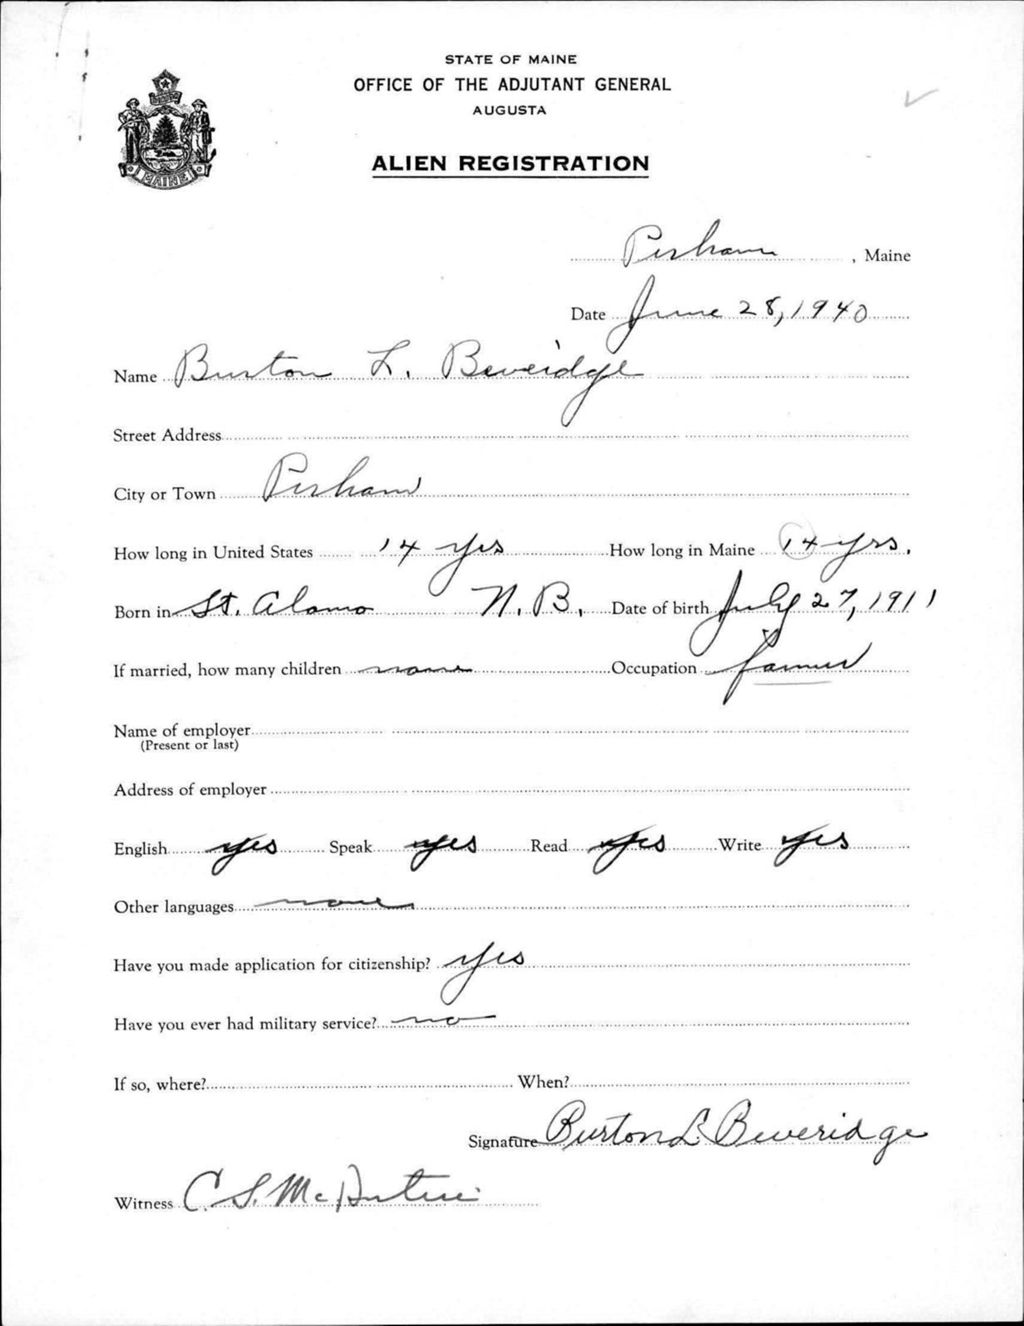 STATE OF MAINE
OFFICE OF THE ADJUTANT GENERAL
AUGUSTA
MAINE
ALIEN REGISTRATION
Perham, Maine
Date June 28, 1940
Name Burton L. Beveridge
Street Address
City or Town Perham
How long in United States 14 yrs How long in Maine 14 yrs.
Born in St. Alamo N.B. Date of birth July 27, 1911
If married, how many children none Occupation farmer
Name of employer
(Present or last)
Address of employer
English yes Speak yes Read yes Write yes
Other languages none
Have you made application for citizenship? yes
Have you ever had military service? no
If so, where? When?
Signature Burton L Beveridge
Witness C. S.